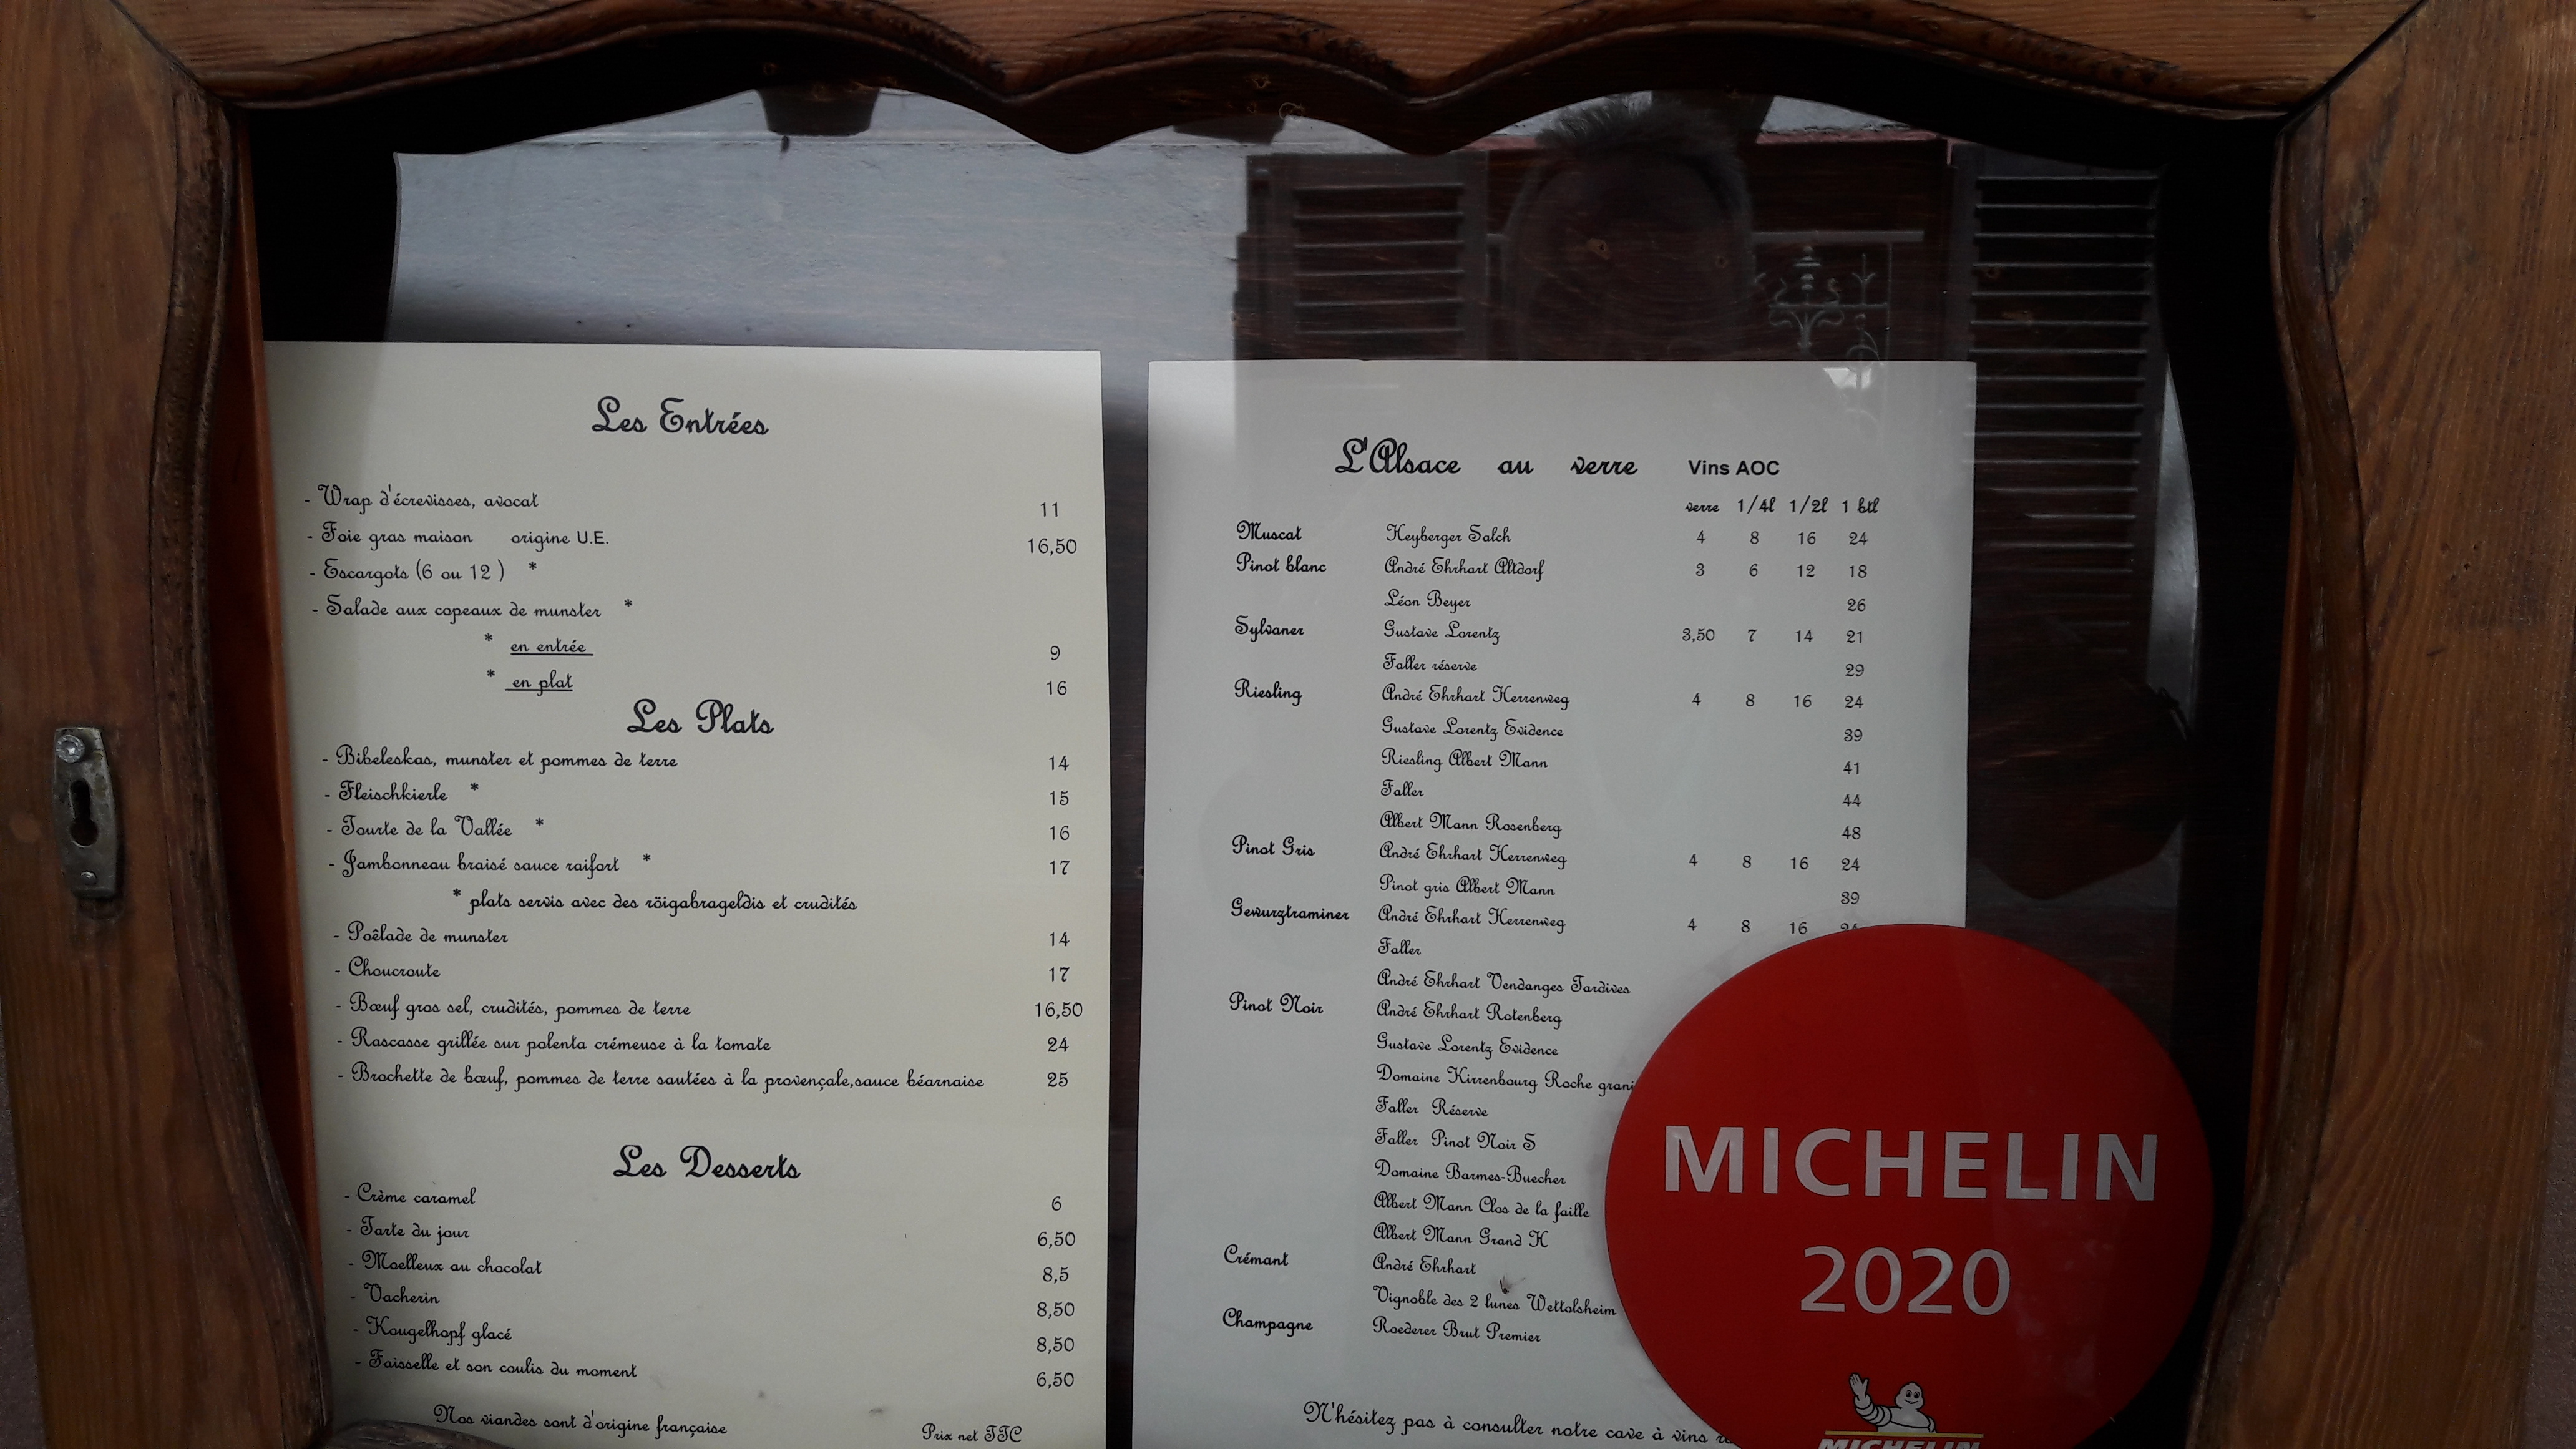 Les Entrées
- Wrap d'écrevisses, avocat 11
- Foie gras maison origine U.E. 16,50
- Escargots (6 ou 12 ) *
- Salade aux copeaux de munster *
* en entrée 9
* en plat 16
Les Plats
- Bibeleskas, munster et pommes de terre 14
- Fleischkierle * 15
- Tourte de la Vallée * 16
- Jambonneau braisé sauce raifort * 17
* plats servis avec des röigabrageldis et crudités
- Poêlade de munster 14
- Choucroute 17
- Bœuf gros sel, crudités, pommes de terre 16,50
- Rascasse grillée sur polenta crémeuse à la tomate 24
- Brochette de bœuf, pommes de terre sautées à la provençale,sauce béarnaise 25
Les Desserts
- Crème caramel 6
- Tarte du jour 6,50
- Moelleux au chocolat 8,5
- Vacherin 8,50
- Kougelhopf glacé 8,50
- Faisselle et son coulis du moment 6,50
Nos viandes sont d'origine française Prix net TTC
L'Alsace au verre Vins AOC
verre 1/4l 1/2l 1 btl
Muscat Heyberger Salch 4 8 16 24
Pinot blanc André Ehrhart Altdorf 3 6 12 18
Léon Beyer 26
Sylvaner Gustave Lorentz 3,50 7 14 21
Faller réserve 29
Riesling André Ehrhart Herrenweg 4 8 16 24
Gustave Lorentz Evidence 39
Riesling Albert Mann 41
Faller 44
Albert Mann Rosenberg 48
Pinot Gris André Ehrhart Herrenweg 4 8 16 24
Pinot gris Albert Mann 39
Gewurztraminer André Ehrhart Herrenweg 4 8 16
Faller
André Ehrhart Vendanges Tardives
Pinot Noir André Ehrhart Rotenberg
Gustave Lorentz Evidence
Domaine Kirrenbourg Roche
Faller Réserve
Faller Pinot Noir S
Domaine Barmes-Buecher
Albert Mann Clos de la faille
Albert Mann Grand H
Crémant André Ehrhart
Vignoble des 2 lunes Wettolsheim
Champagne Roederer Brut Premier
N'hésitez pas à consulter notre cave à vins
MICHELIN
2020
MICHELIN